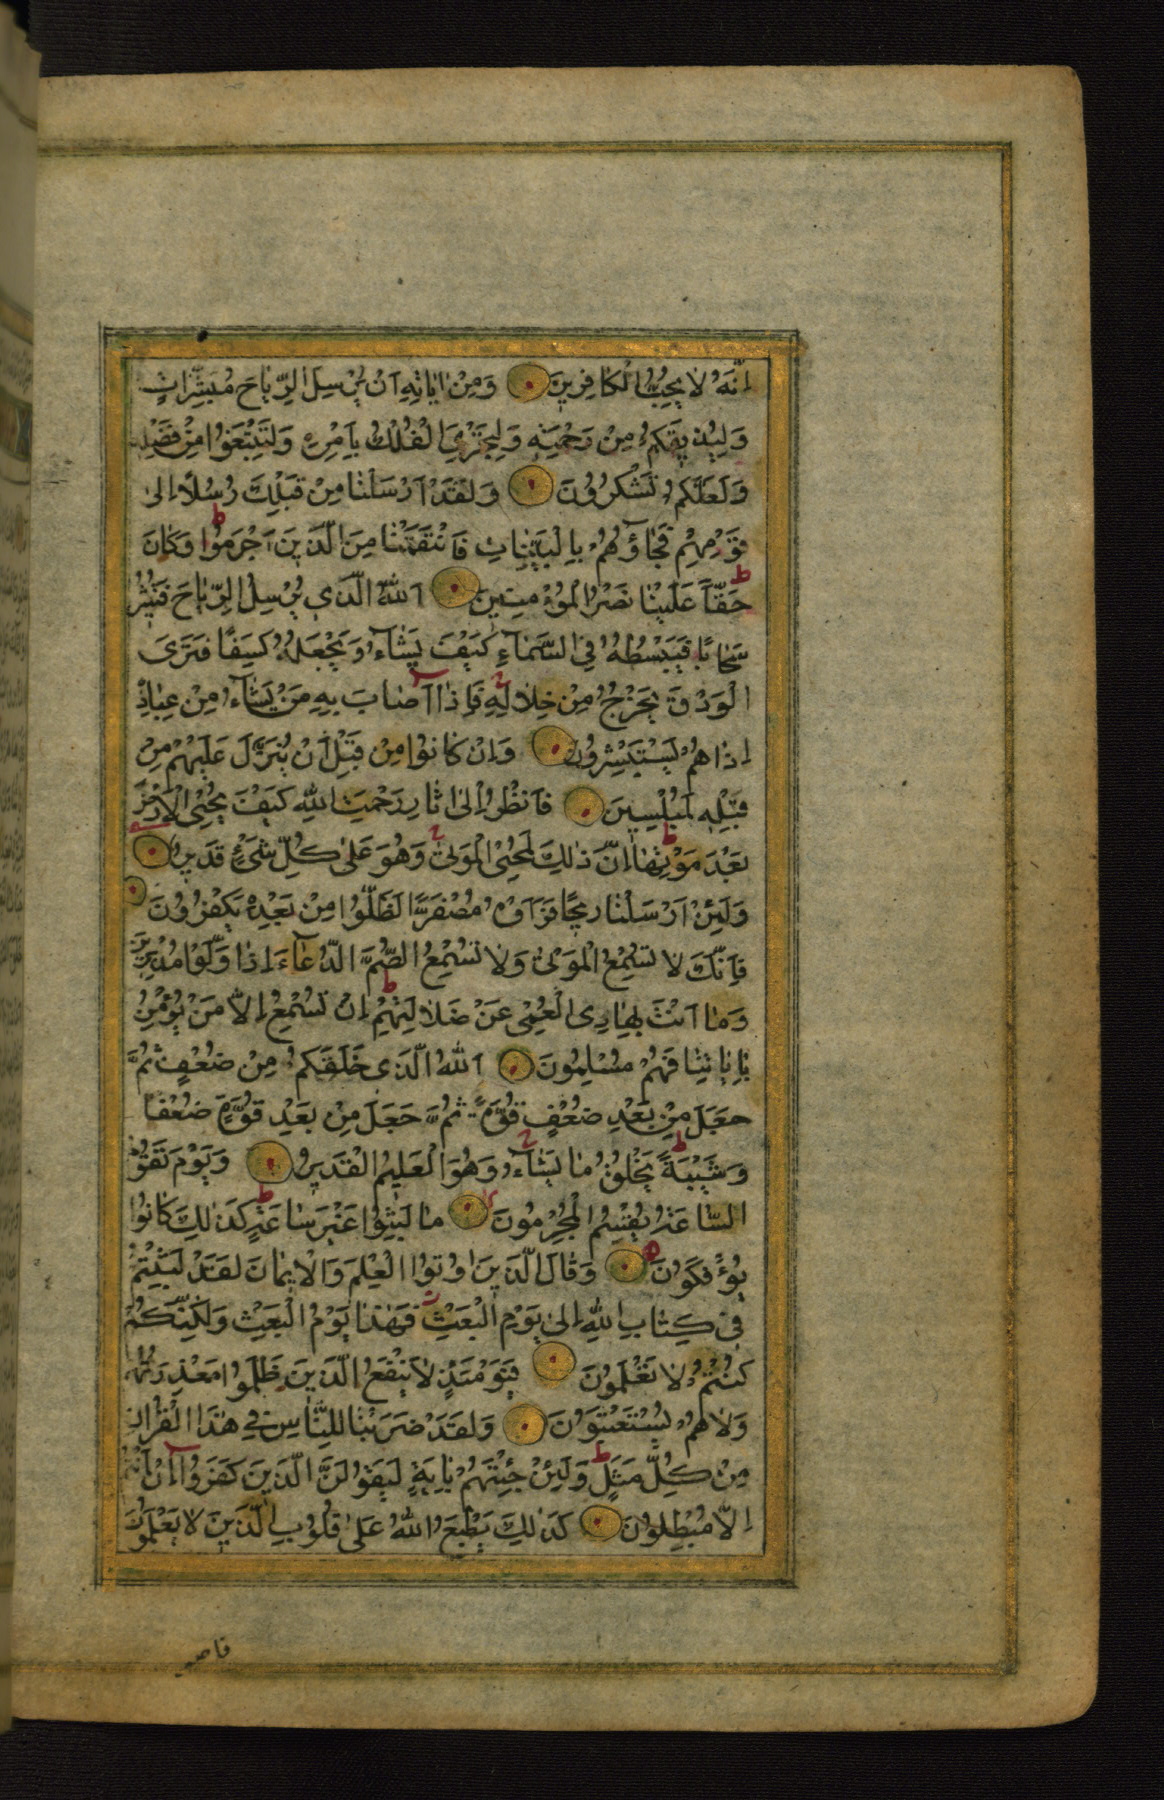 اِنَّهُ لَا يُحِبُّ الْكَافِرِينَ وَمِنْ اٰيَاتِهٖ اَنْ يُرْسِلَ الرِّيَاحَ مُبَشِّرَاتٍ
وَلِيُذِيقَكُمْ مِنْ رَحْمَتِهٖ وَلِتَجْرِيَ الْفُلْكُ بِاَمْرِهٖ وَلِتَبْتَغُوا مِنْ فَضْلِهٖ
وَلَعَلَّكُمْ تَشْكُرُونَ وَلَقَدْ اَرْسَلْنَا مِنْ قَبْلِكَ رُسُلًا اِلٰى
قَوْمِهِمْ فَجَاؤُهُمْ بِالْبَيِّنَاتِ فَانْتَقَمْنَا مِنَ الَّذِينَ اَجْرَمُوا ط وَكَانَ
حَقًّا ط عَلَيْنَا نَصْرُ الْمُؤْمِنِينَ اَللّٰهُ الَّذِي يُرْسِلُ الرِّيَاحَ فَتُثِيرُ
سَحَابًا فَيَبْسُطُهُ فِي السَّمَاءِ كَيْفَ يَشَاءُ وَيَجْعَلُهُ كِسَفًا فَتَرَى
الْوَدْقَ يَخْرُجُ مِنْ خِلَالِهٖ ج فَاِذَا اَصَابَ بِهٖ مَنْ يَشَاءُ مِنْ عِبَادِهٖ
اِذَا هُمْ يَسْتَبْشِرُونَ وَاِنْ كَانُوا مِنْ قَبْلِ اَنْ يُنَزَّلَ عَلَيْهِمْ مِنْ
قَبْلِهٖ لَمُبْلِسِينَ فَانْظُرْ اِلٰى اٰثَارِ رَحْمَتِ اللّٰهِ كَيْفَ يُحْيِي الْاَرْضَ
بَعْدَ مَوْتِهَا ط اِنَّ ذٰلِكَ لَمُحْيِي الْمَوْتٰى ج وَهُوَ عَلٰى كُلِّ شَيْءٍ قَدِيرٌ
وَلَئِنْ اَرْسَلْنَا رِيحًا فَرَاَوْهُ مُصْفَرًّا لَظَلُّوا مِنْ بَعْدِهٖ يَكْفُرُونَ
فَاِنَّكَ لَا تُسْمِعُ الْمَوْتٰى وَلَا تُسْمِعُ الصُّمَّ الدُّعَاءَ اِذَا وَلَّوْا مُدْبِرِينَ
وَمَا اَنْتَ بِهَادِي الْعُمْيِ عَنْ ضَلَالَتِهِمْ ط اِنْ تُسْمِعُ اِلَّا مَنْ يُؤْمِنُ
بِاٰيَاتِنَا فَهُمْ مُسْلِمُونَ اَللّٰهُ الَّذِي خَلَقَكُمْ مِنْ ضُعْفٍ ثُمَّ
جَعَلَ مِنْ بَعْدِ ضُعْفٍ قُوَّةً ثُمَّ جَعَلَ مِنْ بَعْدِ قُوَّةٍ ضَعْفًا
وَشَيْبَةً ط يَخْلُقُ مَا يَشَاءُ ج وَهُوَ الْعَلِيمُ الْقَدِيرُ وَيَوْمَ تَقُومُ
السَّاعَةُ يُقْسِمُ الْمُجْرِمُونَ لا مَا لَبِثُوا غَيْرَ سَاعَةٍ ط كَذٰلِكَ كَانُوا
يُؤْفَكُونَ وَقَالَ الَّذِينَ اُوتُوا الْعِلْمَ وَالْاِيمَانَ لَقَدْ لَبِثْتُمْ
فِي كِتَابِ اللّٰهِ اِلٰى يَوْمِ الْبَعْثِ ز فَهٰذَا يَوْمُ الْبَعْثِ وَلٰكِنَّكُمْ
كُنْتُمْ لَا تَعْلَمُونَ فَيَوْمَئِذٍ لَا يَنْفَعُ الَّذِينَ ظَلَمُوا مَعْذِرَتُهُمْ
وَلَا هُمْ يُسْتَعْتَبُونَ وَلَقَدْ ضَرَبْنَا لِلنَّاسِ فِي هٰذَا الْقُرْاٰنِ
مِنْ كُلِّ مَثَلٍ ط وَلَئِنْ جِئْتَهُمْ بِاٰيَةٍ لَيَقُولَنَّ الَّذِينَ كَفَرُوا اِنْ اَنْتُمْ
اِلَّا مُبْطِلُونَ كَذٰلِكَ يَطْبَعُ اللّٰهُ عَلٰى قُلُوبِ الَّذِينَ لَا يَعْلَمُونَ
فاصبر